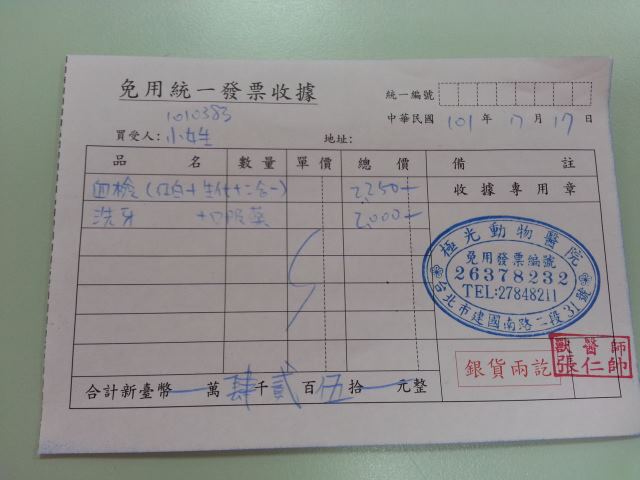 免用統一發票收據
統一編號
1010383
中華民國 101 年 7 月 17 日
買受人: 小女生 地址:
品名 數量 單價 總價 備註
血檢(4白+生化+二合一) 2,250-
收據專用章
洗牙 +口服藥 2,000-
極光動物醫院
免用發票編號
26378232
TEL:27848211
台北市建國南路二段31號
獸醫師
張仁帥
銀貨兩訖
合計新臺幣 萬 肆 千 貳 百 伍 拾 元整